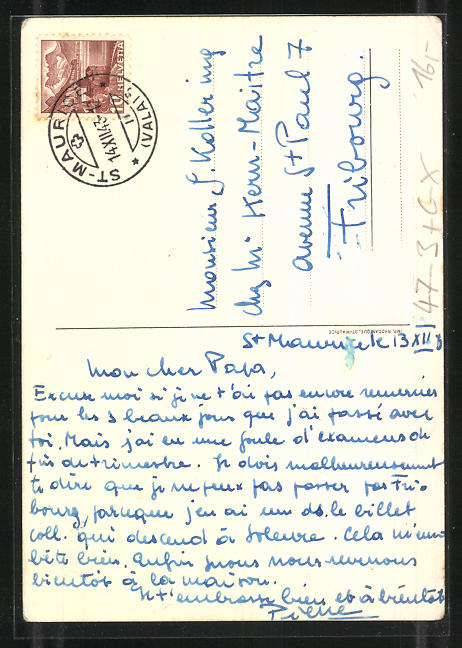 HELVETIA
10
ST-MAURICE
14.XII.43
(VALAIS)
16,-
Monsieur J. Koller ing
chez Mr Kern-Maitre
avenue St Paul 7
Fribourg.
47-3+6-X
ST-MAURICE
St Maurice le 13 XII
Mon cher Papa,
Excuse moi si je ne t'ai pas encore remercier
pour les 3 beaux jours que j'ai passé avec
toi. Mais j'ai eu une foule d'examens de
fin de trimestre. Je dois malheureusement
te dire que je ne peux pas passer par Fri-
bourg, parceque j'en ai un ds. le billet
coll. qui descend à Soleure. Cela m'em-
bête bien. Enfin nous nous revenons
bientôt à la maison.
Je t'embrasse bien et à bientôt
Pierre